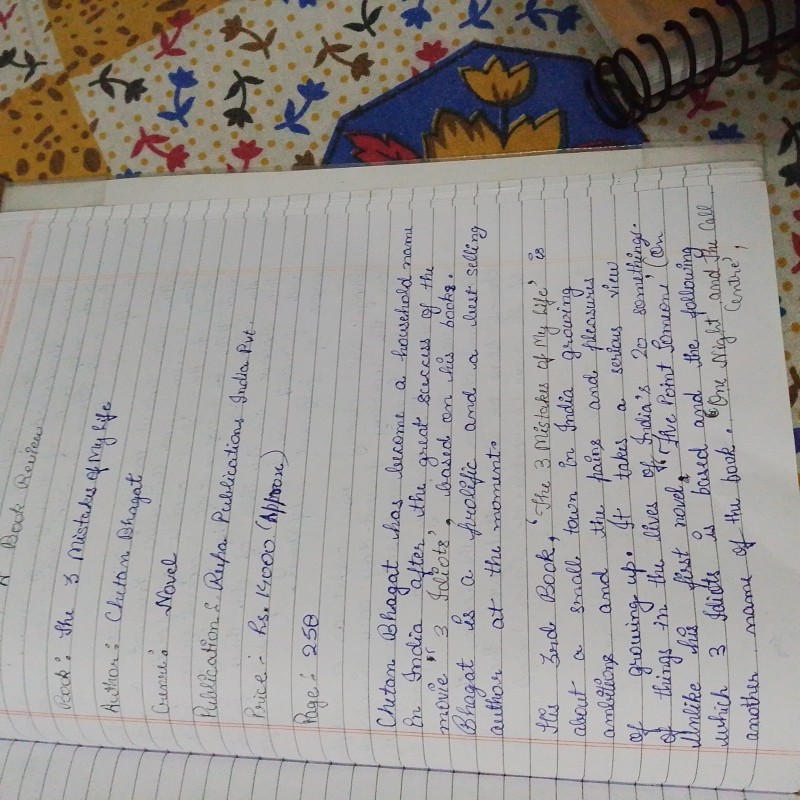 A Book Review
Book: The 3 Mistakes of My Life
Author: Chetan Bhagat
Genre: Novel
Publication: Rupa Publications India Pvt.
Price: Rs. 14000 (Approx)
Page: 258
Chetan Bhagat has become a household name
in India after the great success of the
movie "3 Idiots", based on his books.
Bhagat is a prolific and a best selling
author at the moment.
His 3rd Book, 'The 3 Mistakes of My Life' is
about a small town in India growing
ambitions and the pains and pleasures
of growing up. It takes a serious view
of things in the lives of India's 20 somethings.
Unlike his first novel, "The Point Someone' (On
which 3 Idiots is based and the following
another name of the book. "One Night and the Call
Centre',